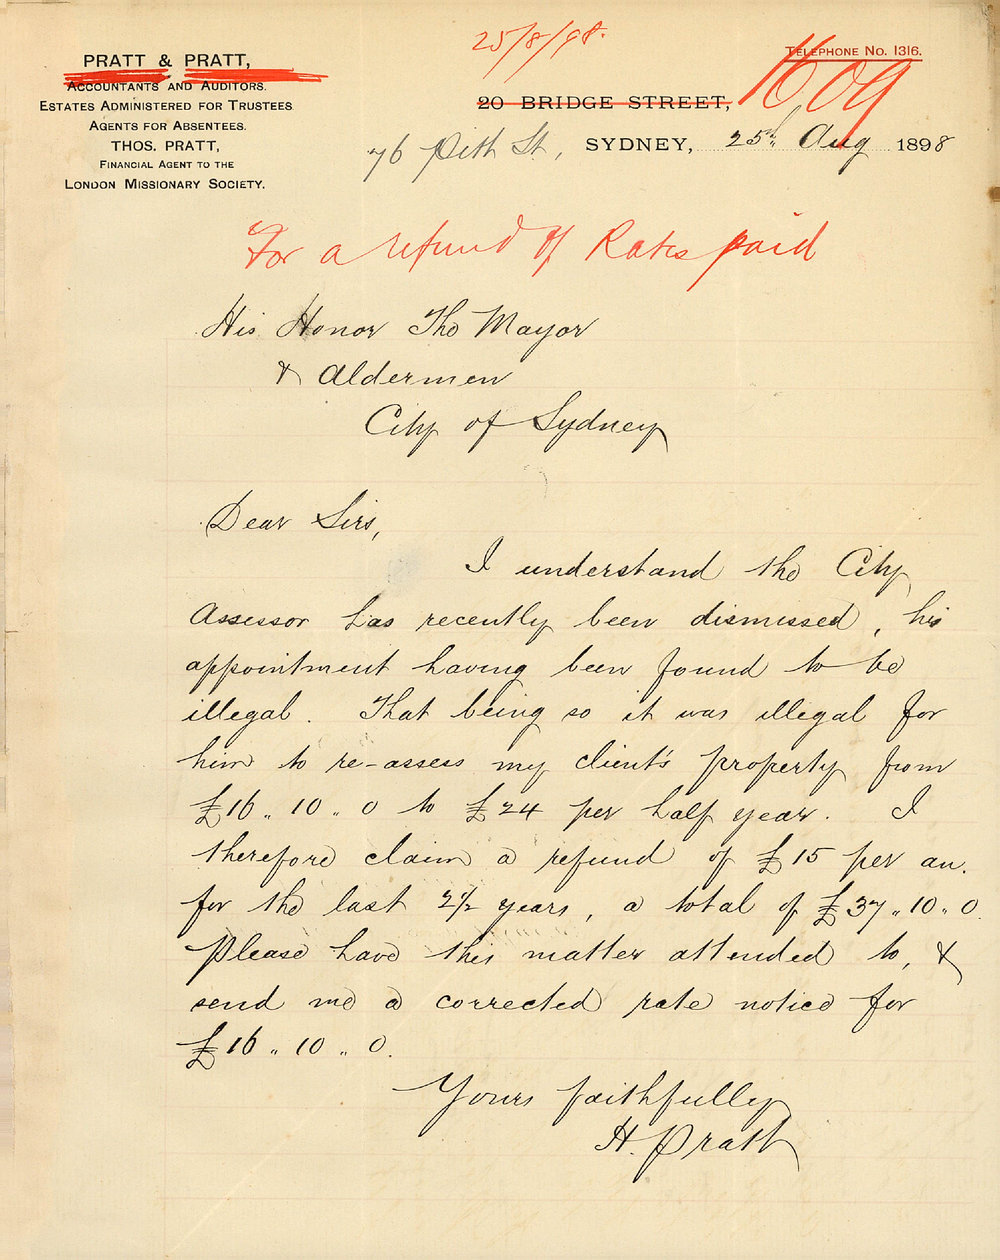 25/8/98.
TELEPHONE NO. 1316.
1609
PRATT & PRATT,
ACCOUNTANTS AND AUDITORS.
ESTATES ADMINISTERED FOR TRUSTEES
AGENTS FOR ABSENTEES.
THOS. PRATT,
FINANCIAL AGENT TO THE
LONDON MISSIONARY SOCIETY.
20 BRIDGE STREET,
76 Pitt St, SYDNEY, 25th Aug 1898
For a refund of Rates paid
His Honor The Mayor
& Aldermen
City of Sydney
Dear Sirs,
I understand the City
Assessor has recently been dismissed, his
appointment having been found to be
illegal. That being so it was illegal for
him to re-assess my client's property from
£16 .. 10 .. 0 to £24 per half year. I
therefore claim a refund of £15 per an.
for the last 2½ years, a total of £37 .. 10 .. 0.
Please have this matter attended to, &
send me a corrected rate notice for
£16 .. 10 .. 0.
Yours faithfully
H. Pratt